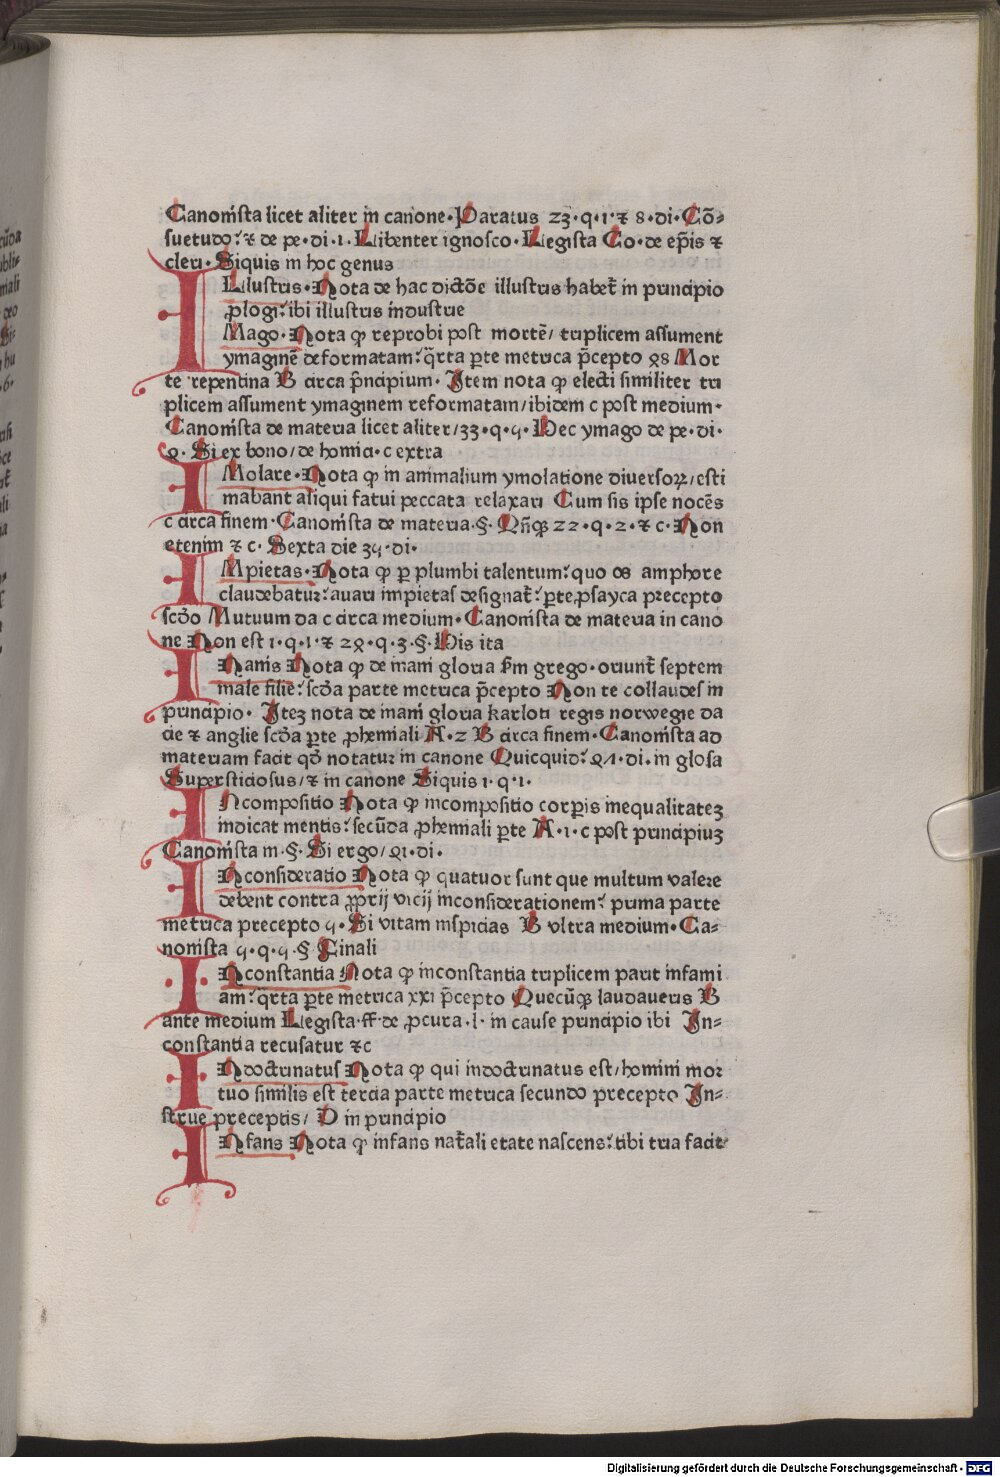 Canonista licet aliter in canone · Paratus 23 · q · 1 · ⁊ 8 · di · Cō⸗
suetudo : ⁊ de pe · di · 1 · Libenter ignosco · Legista Co · de ep̄is ⁊
cleri · Siquis in hoc genus
ILlustris · Nota de hac dictōe illustris habet̄ in principio
ꝓlogi : ibi illustris industrie
IMago · Nota ꝙ reprobi post mortē / triplicem assument
ymaginē deformatam : q̄rta ꝑte metrica p̄cepto 98 Mor
te repentina B circa p̄ncipium · Item nota ꝙ electi similiter tri
plicem assument ymaginem reformatam / ibidem c post medium ·
Canonista de materia licet aliter / 33 · q · 5 · Hec ymago de pe · di ·
2 · Si ex bono / de homīa · c extra
IMolare · Nota ꝙ in animalium ymolatione diuersoꝝ / esti
mabant aliqui fatui peccata relaxari Cum sis ipse nocēs
c circa finem · Canonista de materia · § · Qn̄ꝙ 22 · q · 2 · ⁊ c · Non
etenim ⁊ c · Sexta die 35 · di ·
IMpietas · Nota ꝙ ꝑ plumbi talentum : quo os amphore
claudebatur : auari impietas designat̄ : ꝑte ꝓsayca precepto
scd̄o Mutuum da c circa medium · Canonista de materia in cano
ne Non est 1 · q · 1 · ⁊ 29 · q · 3 · § · His ita
INanis Nota ꝙ de inani gloria s̄m grego · oriunt̄ septem
male filie : scd̄a parte metrica p̄cepto Non te collaudes in
principio · Itez nota de inani gloria karloti regis norwegie da
cie ⁊ anglie scd̄a ꝑte ꝓhemiali A · 2 B circa finem · Canonista ad
materiam facit qd̄ notatur in canone Quicquid : 41 · di · in glosa
Superstitiosus / ⁊ in canone Siquis 1 · q · 1 ·
INcompositio Nota ꝙ incompositio corꝑis inequalitatez
indicat mentis : secūda ꝓhemiali ꝑte A · 1 · c post principiuz
Canonista in · § · Si ergo / 41 · di ·
INconsideratio Nota ꝙ quatuor sunt que multum valere
debent contra ꝓprij vicij inconsiderationem : prima parte
metrica precepto 5 · Si vitam inspicias B vltra medium · Ca⸗
nonista 5 · q · 5 · § · Finali
INconstantia Nota ꝙ inconstantia triplicem parit infami
am : q̄rta ꝑte metrica xxi p̄cepto Quecūꝙ laudaueris B
ante medium Legista · ff · de ꝓcura · l · in cause principio ibi In⸗
constantia recusatur ⁊c
INdoctrinatus Nota ꝙ qui indoctrinatus est / homini mor
tuo similis est tercia parte metrica secundo precepto In⸗
strue preceptis / D in principio
INfans Nota ꝙ infans nat̄ali etate nascens : tibi tria facit
Digitalisierung gefördert durch die Deutsche Forschungsgemeinschaft - DFG